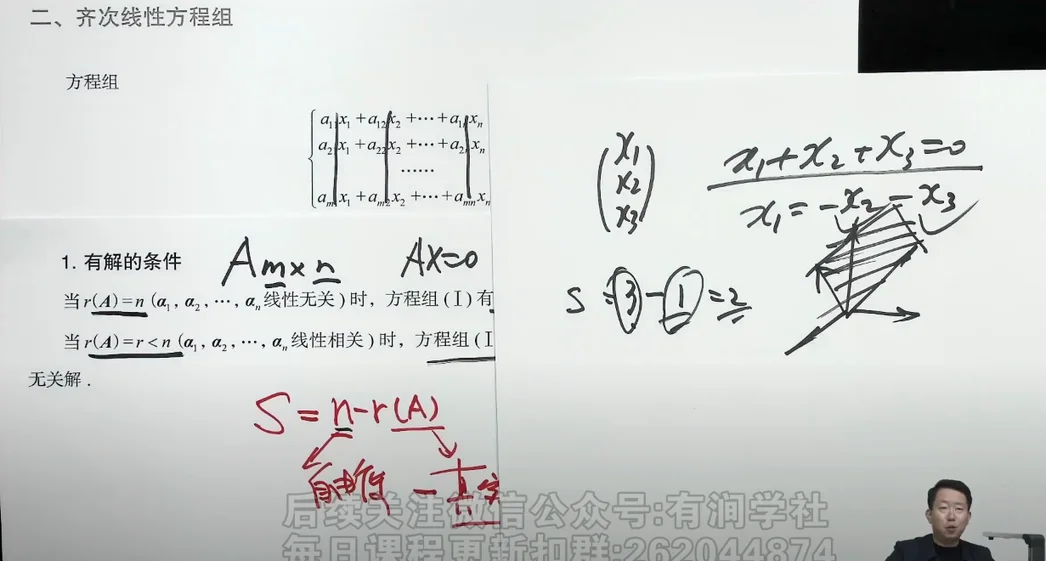 二、齐次线性方程组
方程组
a₁₁x₁ + a₁₂x₂ + ⋯ + a₁ₙxₙ
a₂₁x₁ + a₂₂x₂ + ⋯ + a₂ₙxₙ
⋯⋯
aₘ₁x₁ + aₘ₂x₂ + ⋯ + aₘₙxₙ
1. 有解的条件 Aₘ×ₙ AX=0
当 r(A)=n (α₁, α₂, ⋯, αₙ 线性无关) 时, 方程组(I)有
当 r(A)=r<n (α₁, α₂, ⋯, αₙ 线性相关) 时, 方程组(I
无关解.
S=n-r(A)
自由
x₁
x₂
x₃
x₁+x₂+x₃=0
x₁=-x₂-x₃
S=3-1=2
后续关注微信公众号:有润学社
每日课程更新扣群:262044874